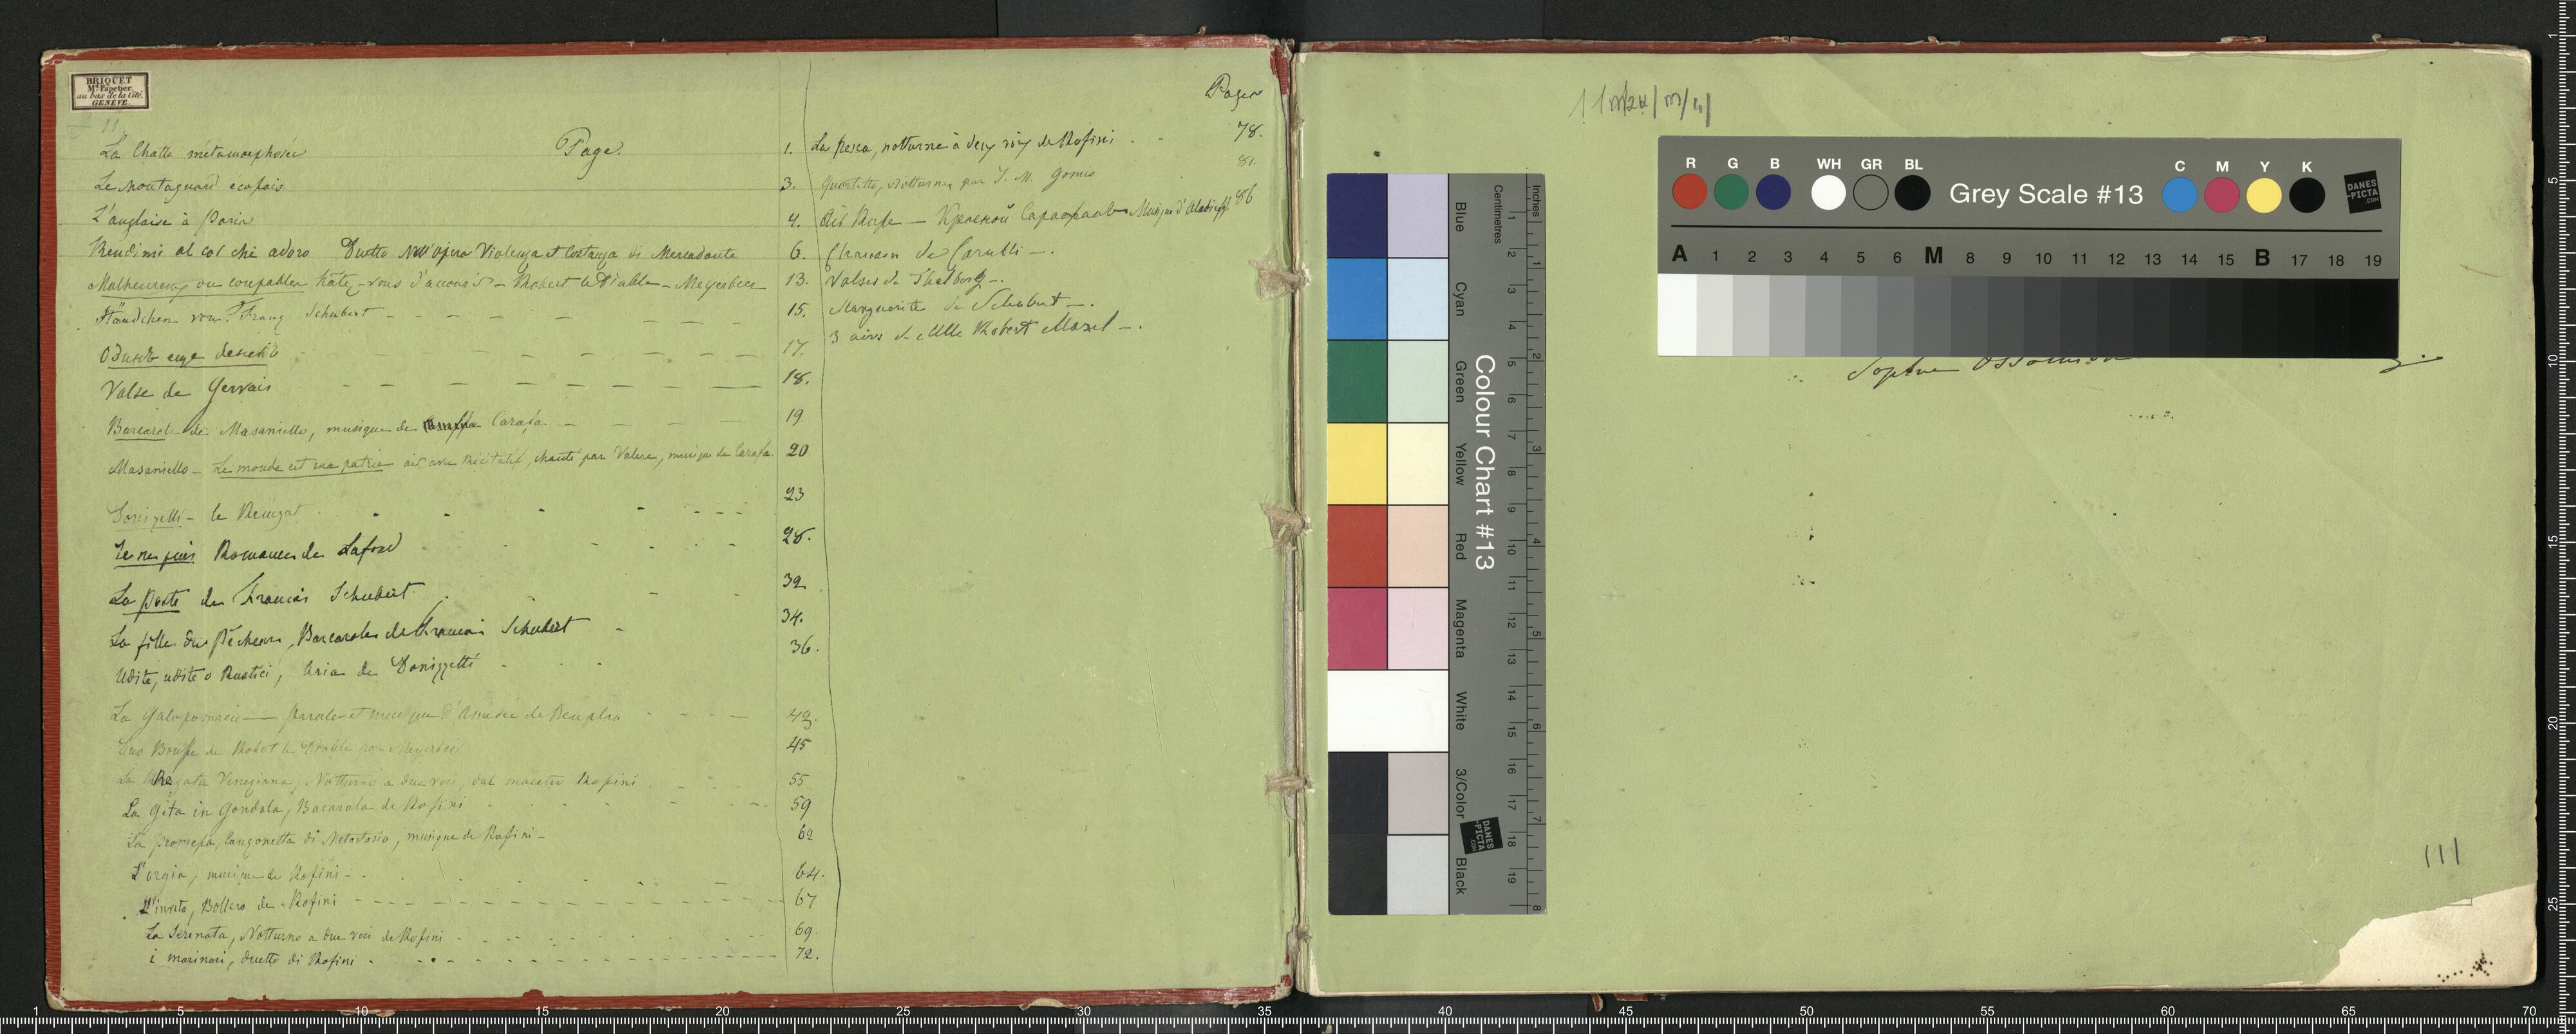 BRIQUET
Md. Papetier
au bas de la Cité,
GENÈVE.
11
Page.
La Chatte métamorphosée 1.
Le Montagnard écossais 3.
L'anglaise à Paris 4.
Rendimi al cor che adoro Duetto Nell'Opera Violenza et Costanza di Mercadante 6.
Malheureux ou coupables hâtez-vous d'accourir - Robert le Diable - Meyerbeer 13.
Ständchen von Franz Schubert 15.
17.
Valse de Gervais 18.
Barcarole de Masaniello, musique de Carafa 19
Masaniello - Le monde est ma patrie air avec Récitatif, chanté par Valere, musique de Carafa. 20
Donizetti - le Renégat 23
Je ne puis Romance de Lafond 28.
La poste de François Schubert 32
La fille du Pêcheur, Barcarole de François Schubert 34.
Udite, udite o Rustici, Aria de Donizzetti 36.
La Galopomanie - parole et musique d'Amédée de Beauplan 43.
Duo Bouffe de Robert le Diable par Meyerbeer 45
La Regata Veneziana, Notturno a due voci, del maestro Rossini 55
La Gita in Gondola, Bacarola de Rossini 59
La promessa, Canzonetta di Metastasio, musique de Rossini - 62
L'orgia, musique de Rossini - 64.
L'invito, Bollero de Rossini 67
La Serenata, Notturno a due voci de Rossini 69.
i marinari, duetto di Rossini 72.
Pages
La Pesca, notturno à due voix de Rossini 78.
Quartetto, Notturne par J. M. Gomis 81.
Air Russe - Красной Сарафанъ Musique d'Alabieff. 86
Chanson de Carulli -.
Valses de Thalberg -.
Marguerite de Schubert -.
3 airs de Mlle Robert Mazel -.
Sophie
111
R G B WH GR BL Grey Scale #13 C M Y K DANES-PICTA.COM
A 1 2 3 4 5 6 M 8 9 10 11 12 13 14 15 B 17 18 19
Colour Chart #13
Inches 1 2 3 4 5 6 7 8
Centimetres 1 2 3 4 5 6 7 8 9 10 11 12 13 14 15 16 17 18 19
Blue Cyan Green Yellow Red Magenta White 3/Color Black
DANES-PICTA.COM
1 5 10 15 20 25 30 35 40 45 50 55 60 65 70
1 5 10 15 20 25